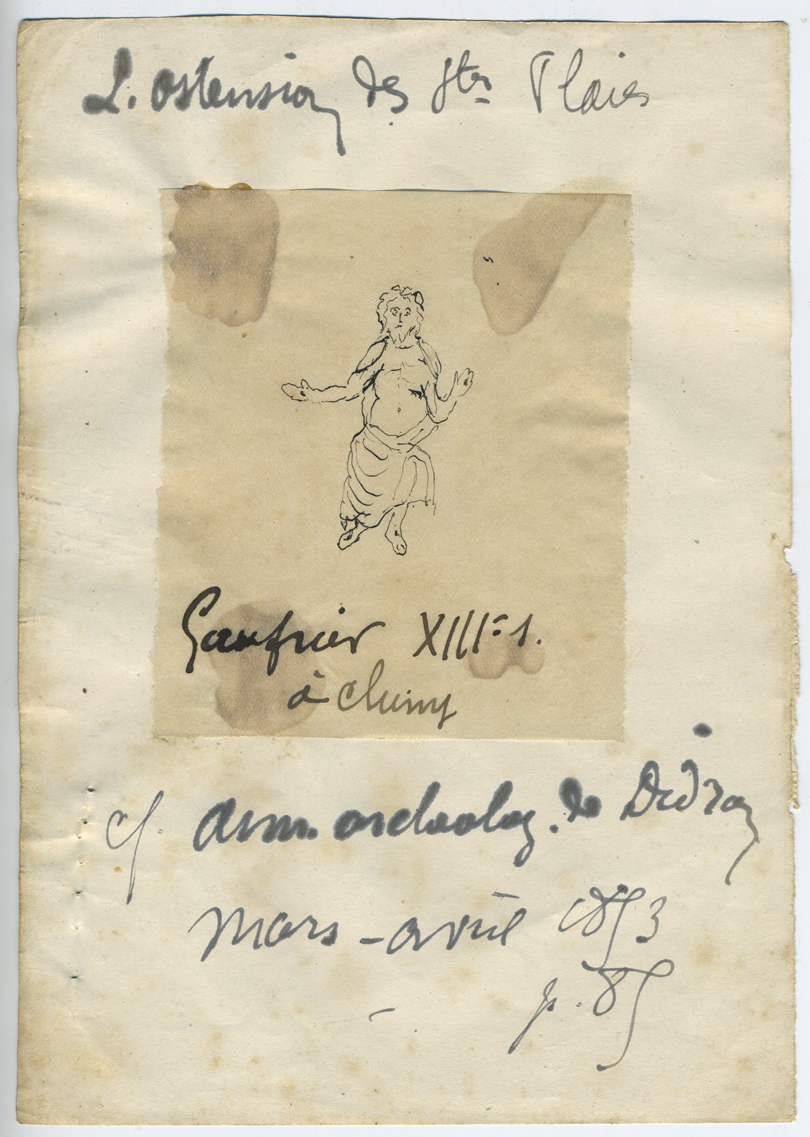 L'ostension des Stes Plaies
Gaufrier XIIIe s.
à Cluny
cf. Ann. archeolog. de Didron
mars - avril 1853
p. 85